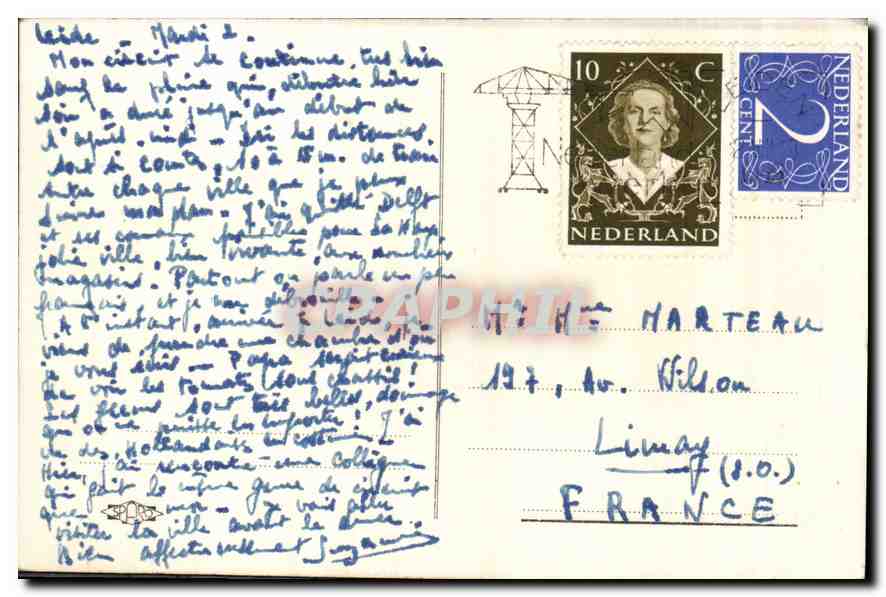 Leide - Mardi 2.
Mon circuit se continue, très bien
sauf la pluie qui, débutée hier
soir a duré jusqu'au début de
l'après-midi - Ici les distances
sont si courtes, 10 à 15 m. de train
entre chaque ville que je peux
suivre mon plan - J'ai quitté Delft
et ses canaux paisibles pour La Haye
jolie ville, bien vivante, aux
magasins - Partout on parle un peu
français et je me débrouille -
A l'instant, arrivée à Leide, je
viens de prendre une chambre d'où
je vous écris - Papa serait
de voir les tomates sous chassis!
Les fleurs sont très belles, dommage
que on ne puisse les emporter! J'ai
vu des Hollandais en costume -
Hier, j'ai rencontré une collègue
qui fait le même genre de circuit
que moi - Je vais aller
visiter la ville avant la
Bien affectueusement
10 C
NEDERLAND
NEDERLAND
2
CENT
CPARAPHIL
Mr Mme MARTEAU
197, Av. Wilson
Limay
(S.O.)
FRANCE